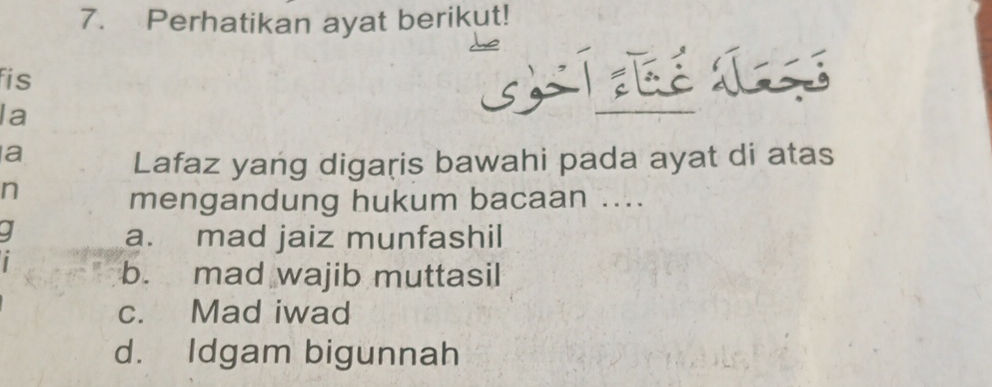 7. Perhatikan ayat berikut!
صلے
فَجَعَلَهٗ غُثَاۤءً اَحْوٰى
fis
la
a
n
g
i
Lafaz yang digaris bawahi pada ayat di atas
mengandung hukum bacaan ....
a. mad jaiz munfashil
b. mad wajib muttasil
c. Mad iwad
d. Idgam bigunnah